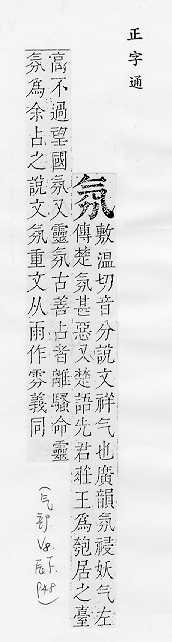 正字通
氛
敷溫切音分說文祥气也廣韻氛祲妖气左
傳楚氛甚惡又楚語先君莊王爲匏居之臺
高不過望國氛又靈氛古善占者離騷命靈
氛爲余占之說文氛重文从雨作雰義同
(气部
V8.
P48)